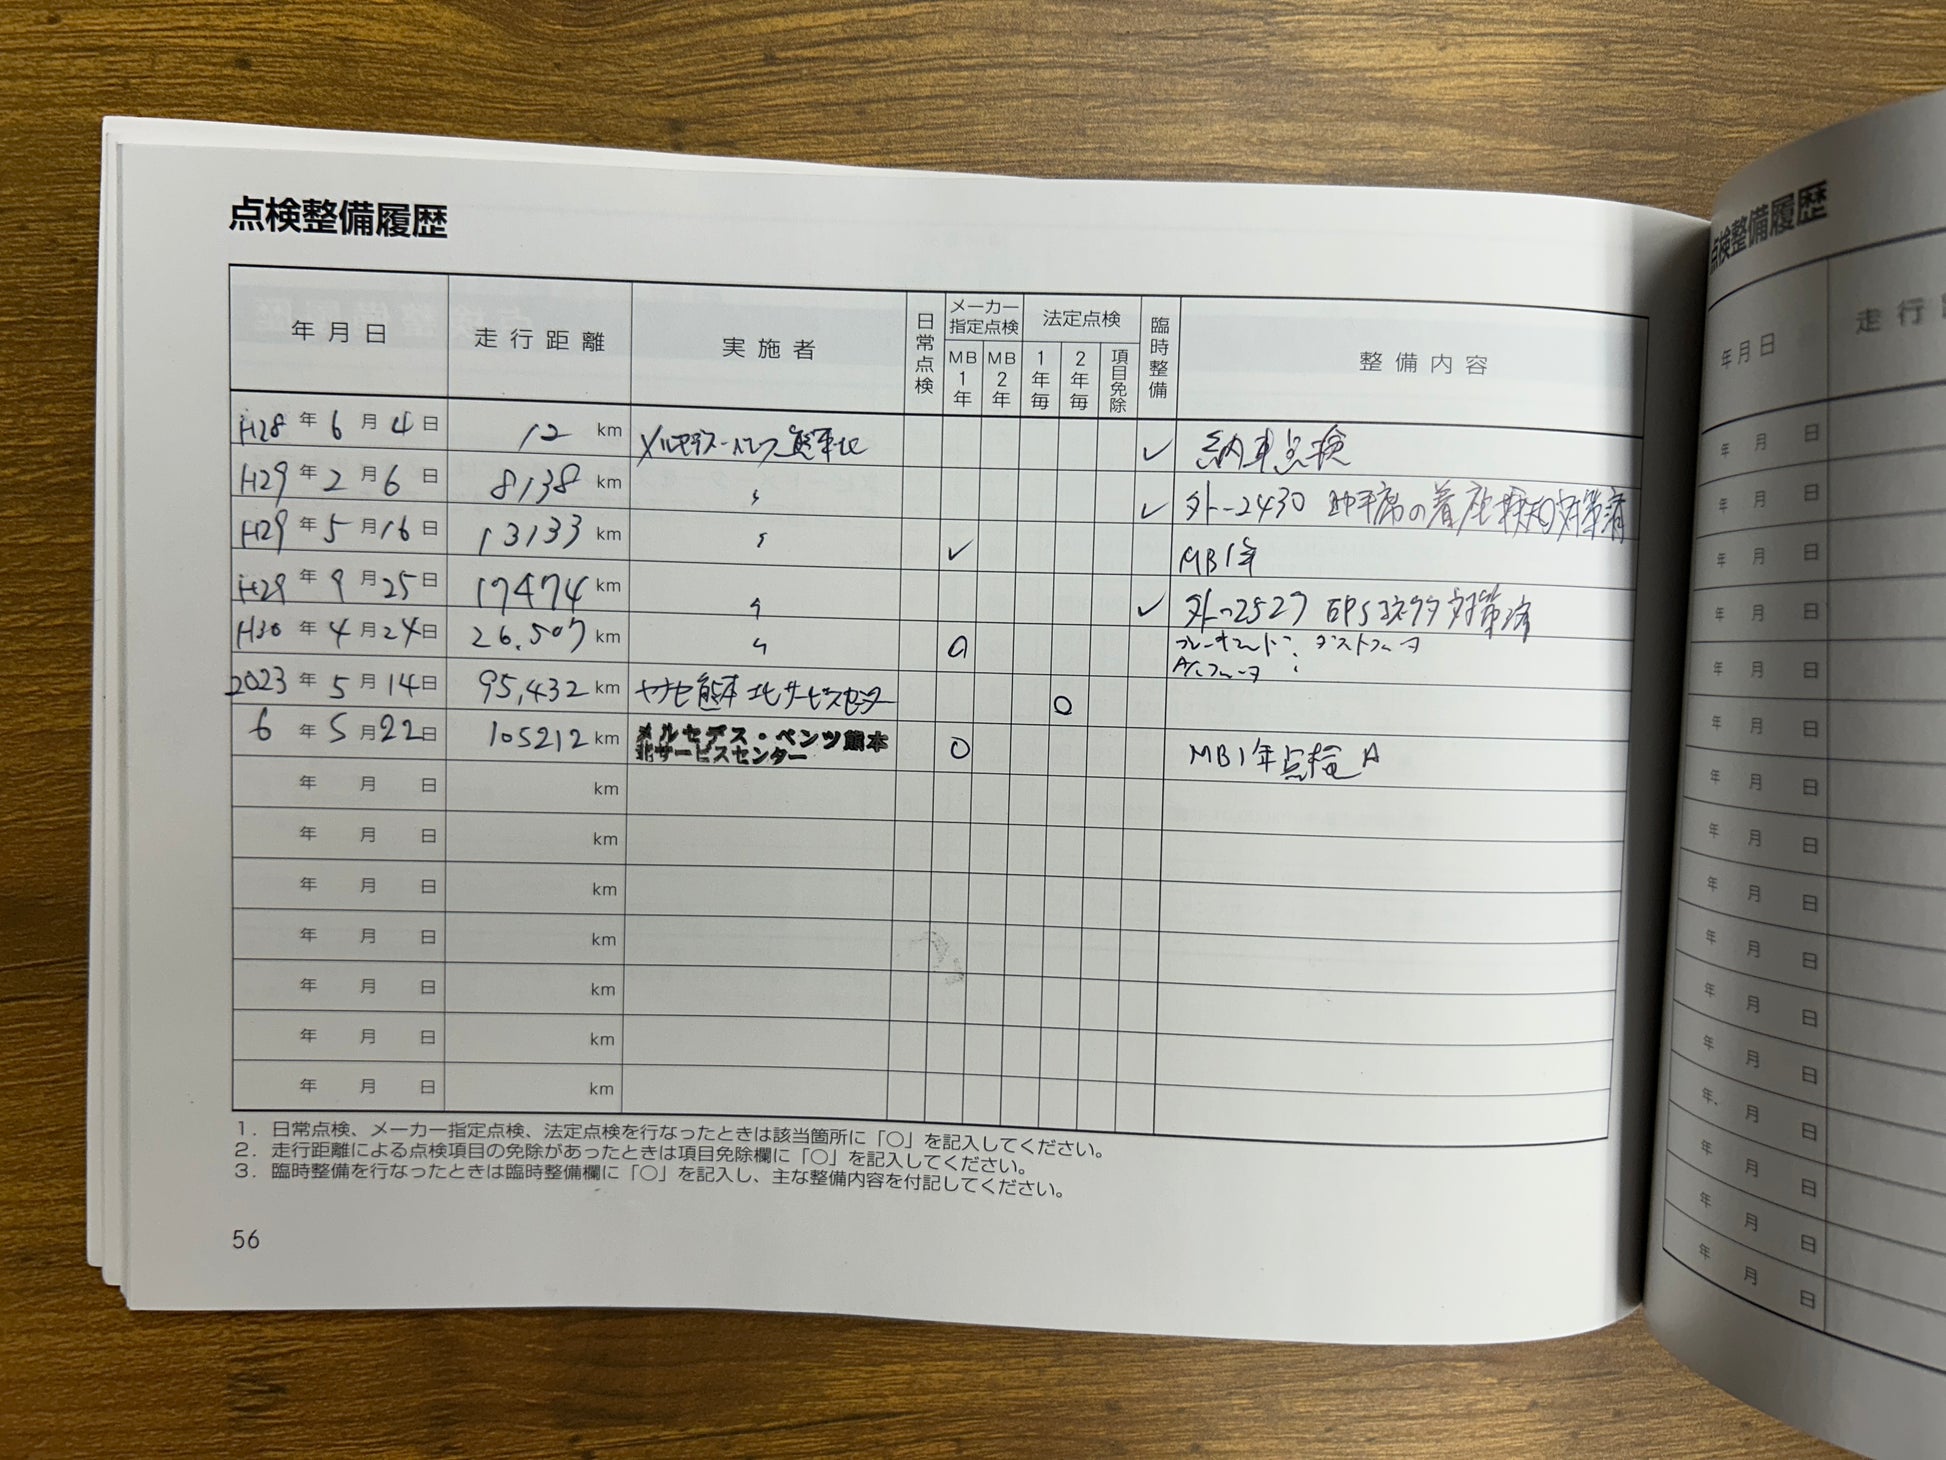 点検整備履歴
年月日 走行距離 実施者 日常点検 メーカー指定点検 MB1年 MB2年 法定点検 1年毎 2年毎 項目免除 臨時整備 整備内容
H28年6月4日 12 km メルセデス・ベンツ熊本北 ✓ 納車点検
H29年2月6日 8138 km 〃 ✓ 外-2430 助手席の着座検知対策済
H29年5月16日 13133 km 〃 ✓ MB1年
H29年9月25日 17474 km 〃 ✓ 外-2527 EPSコネクタ対策済
H30年4月24日 26.507 km 〃 ○ ダストフィルタ
2023年5月14日 95,432 km ヤナセ熊本北サービスセンター ○
6年5月22日 105212 km メルセデス・ベンツ熊本 ○ MB1年点検 A
北サービスセンター
年 月 日 km
年 月 日 km
年 月 日 km
年 月 日 km
年 月 日 km
年 月 日 km
年 月 日 km
1. 日常点検、メーカー指定点検、法定点検を行なったときは該当箇所に「○」を記入してください。
2. 走行距離による点検項目の免除があったときは項目免除欄に「○」を記入してください。
3. 臨時整備を行なったときは臨時整備欄に「○」を記入し、主な整備内容を付記してください。
56
点検整備履歴
年月日 走行
年 月 日
年 月 日
年 月 日
年 月 日
年 月 日
年 月 日
年 月 日
年 月 日
年 月 日
年 月 日
年 月 日
年 月 日
年 月 日
年 月 日
年 月 日
年 月 日